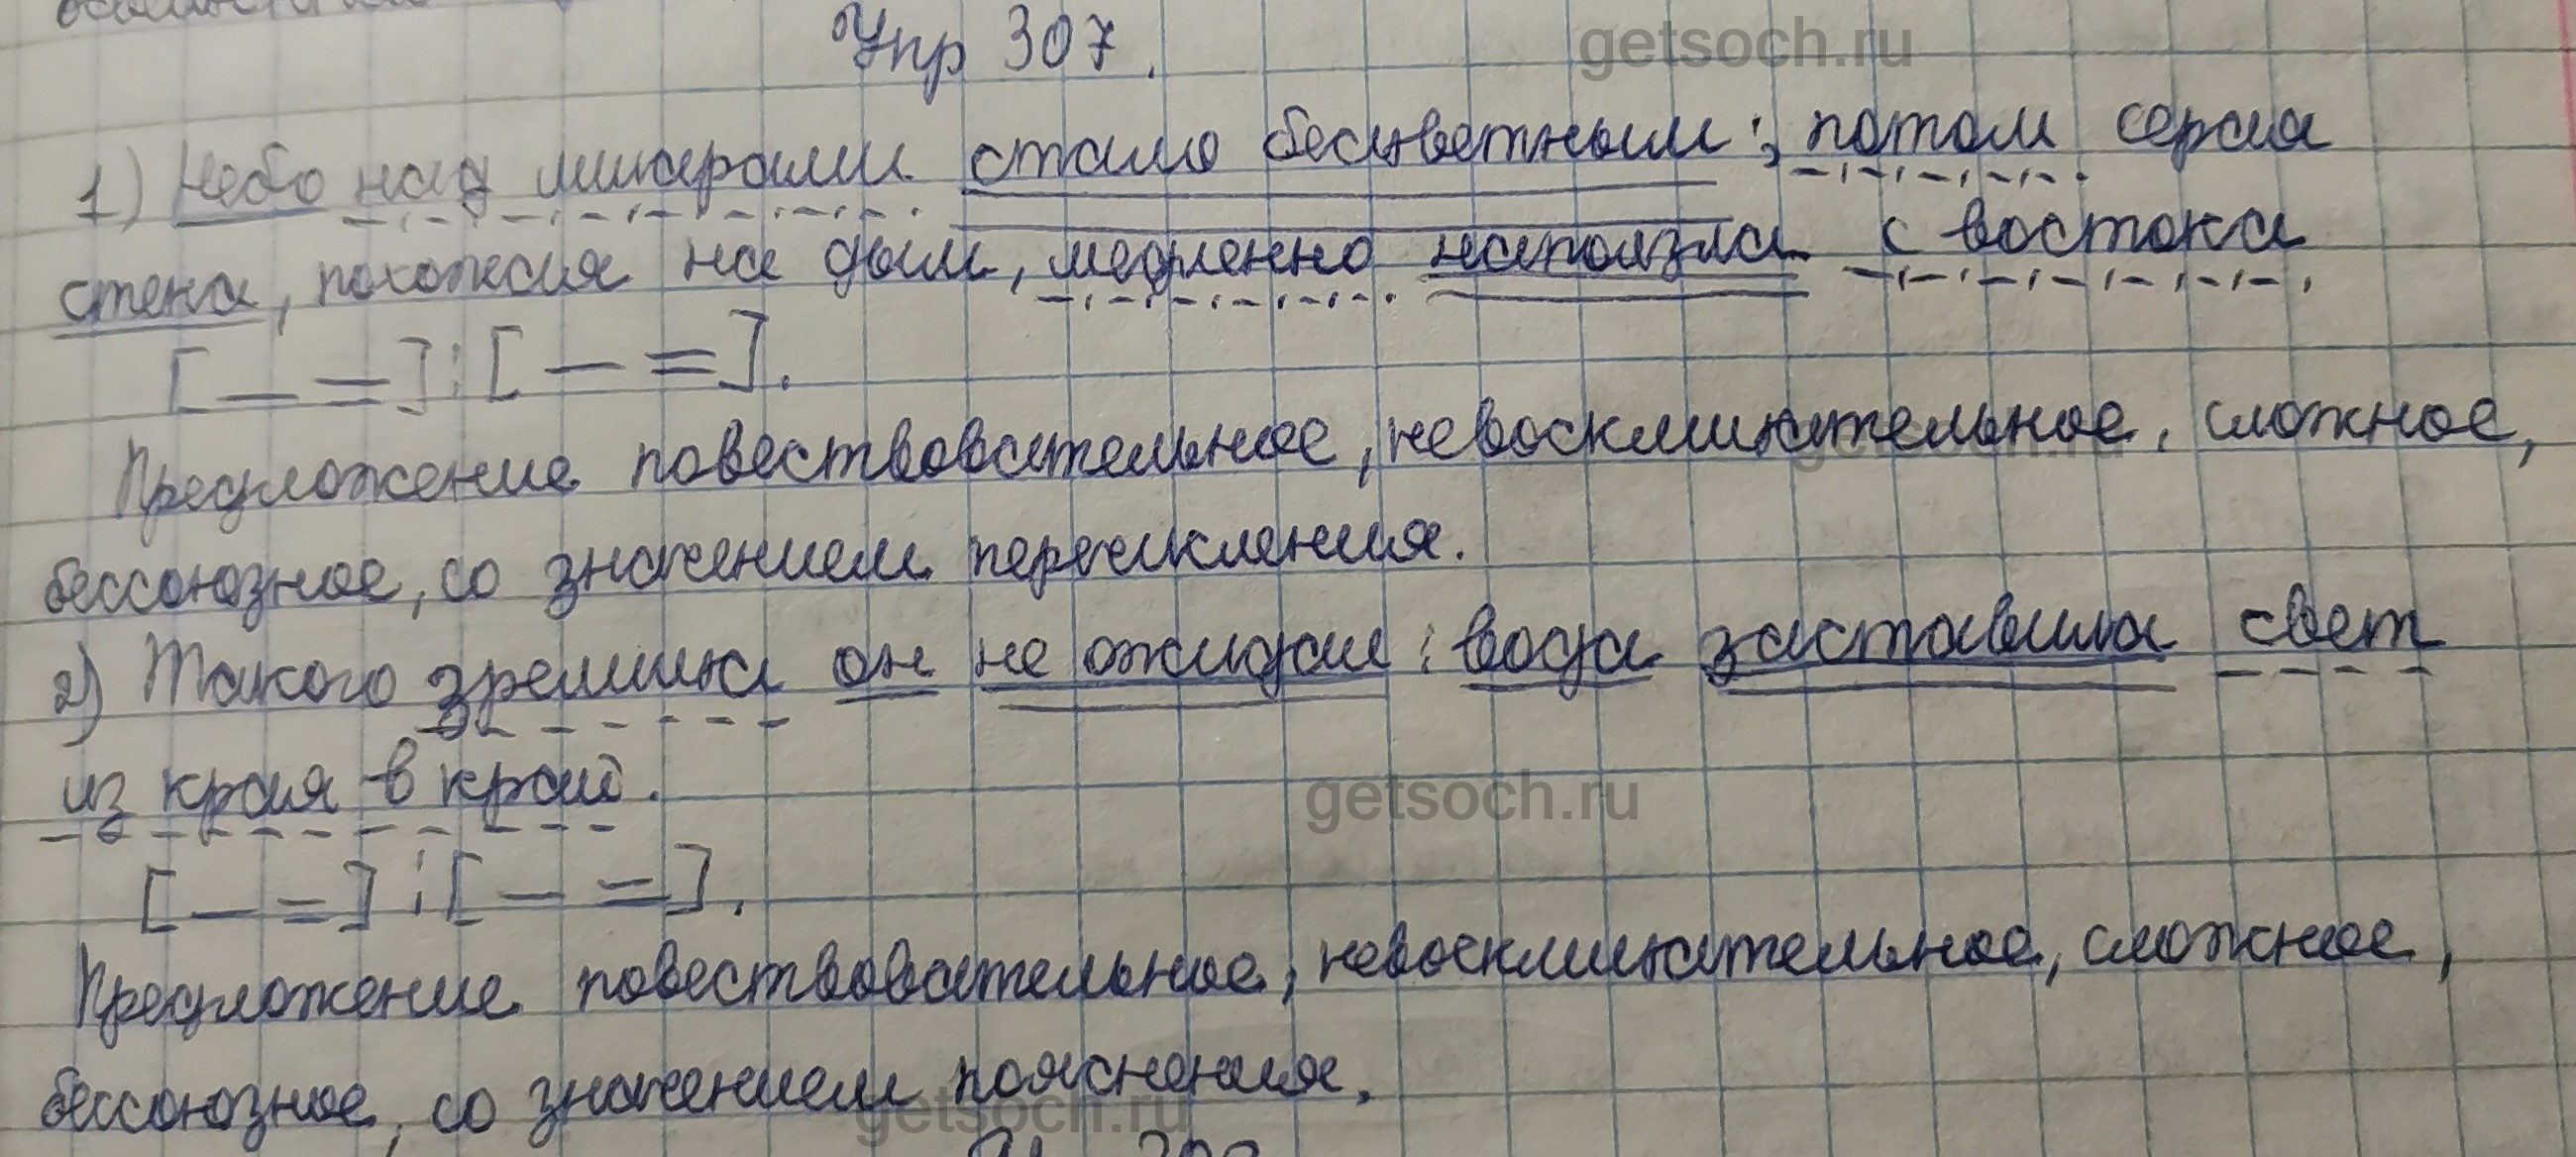 Упр 307.
getsoch.ru
1) Небо над шхерами стало бесцветным; потом серая
стена, похожая на дым, медленно наползла с востока.
[— =]; [— =].
Предложение повествовательное, невосклицательное, сложное,
getsoch.ru
бессоюзное, со значением перечисления.
2) Такого зрелища он не ожидал: вода заставила свет
из края в край.
getsoch.ru
[— =]: [— =].
Предложение повествовательное, невосклицательное, сложное,
бессоюзное, со значением пояснения.
getsoch.ru